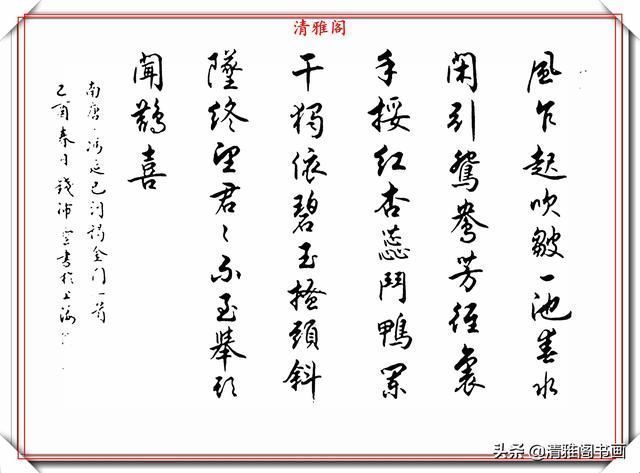 清雅阁
風乍起吹皺一池春水
閑引鴛鴦芳徑裏
手挼红杏蕊鬥鴨闌
干獨依碧玉搔頭斜
墜終望君〻不至舉頭
聞鵲喜
南唐、馮延巳词謁金门一首
己酉春日錢沛雲書於上海
头条 @清雅阁书画